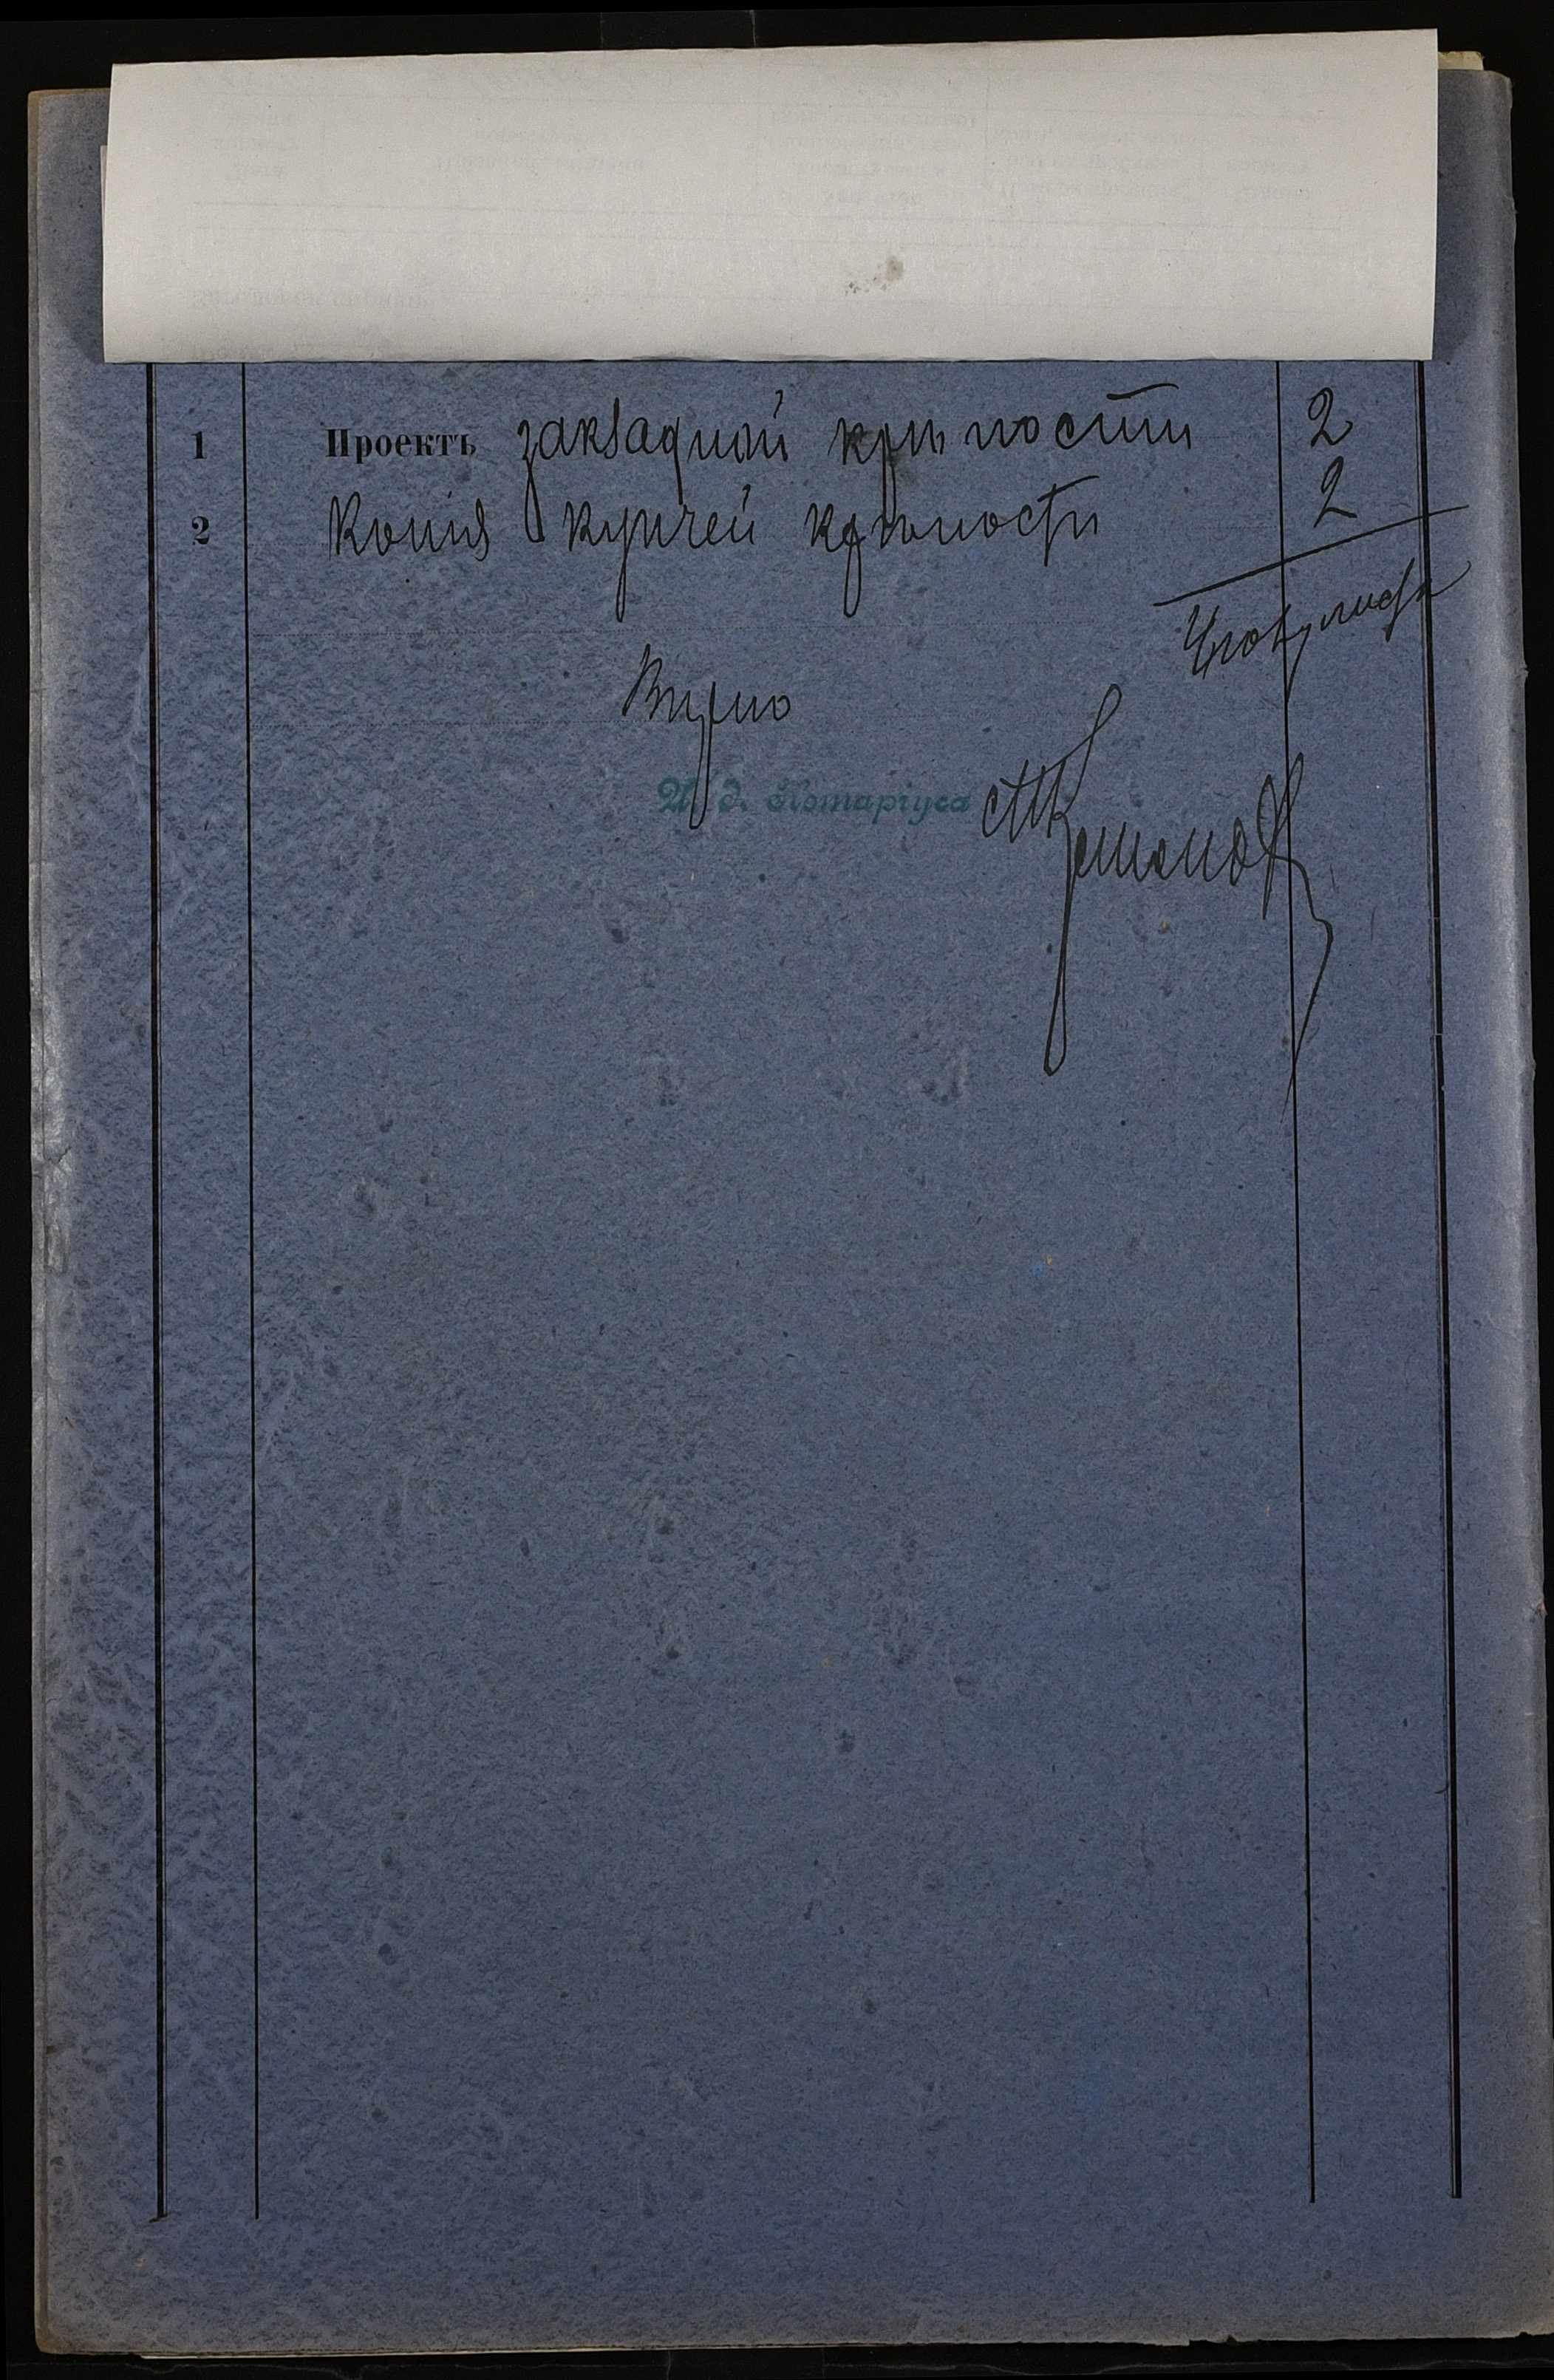 1 Проектъ закладной крѣпости 2
2 Копія купчей крѣпости 2
листа
Вѣрно
И. д. Нотаріуса